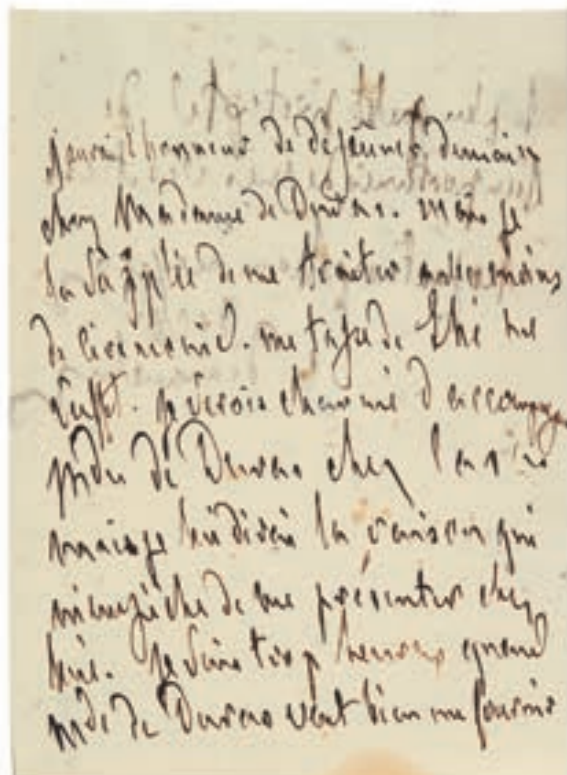 j'aurai l'honneur de déjeuner demain
chez Madame de Duras. mais je
la supplie de me traiter avec moins
de cérémonie. une tasse de thé me
suffit. je serois charmé d'accompagner
Mde de Duras chez
mais je lui dirai la raison qui
m'empêche de me présenter chez
lui. je suis trop heureux quand
Mde de Duras veut bien me fournir